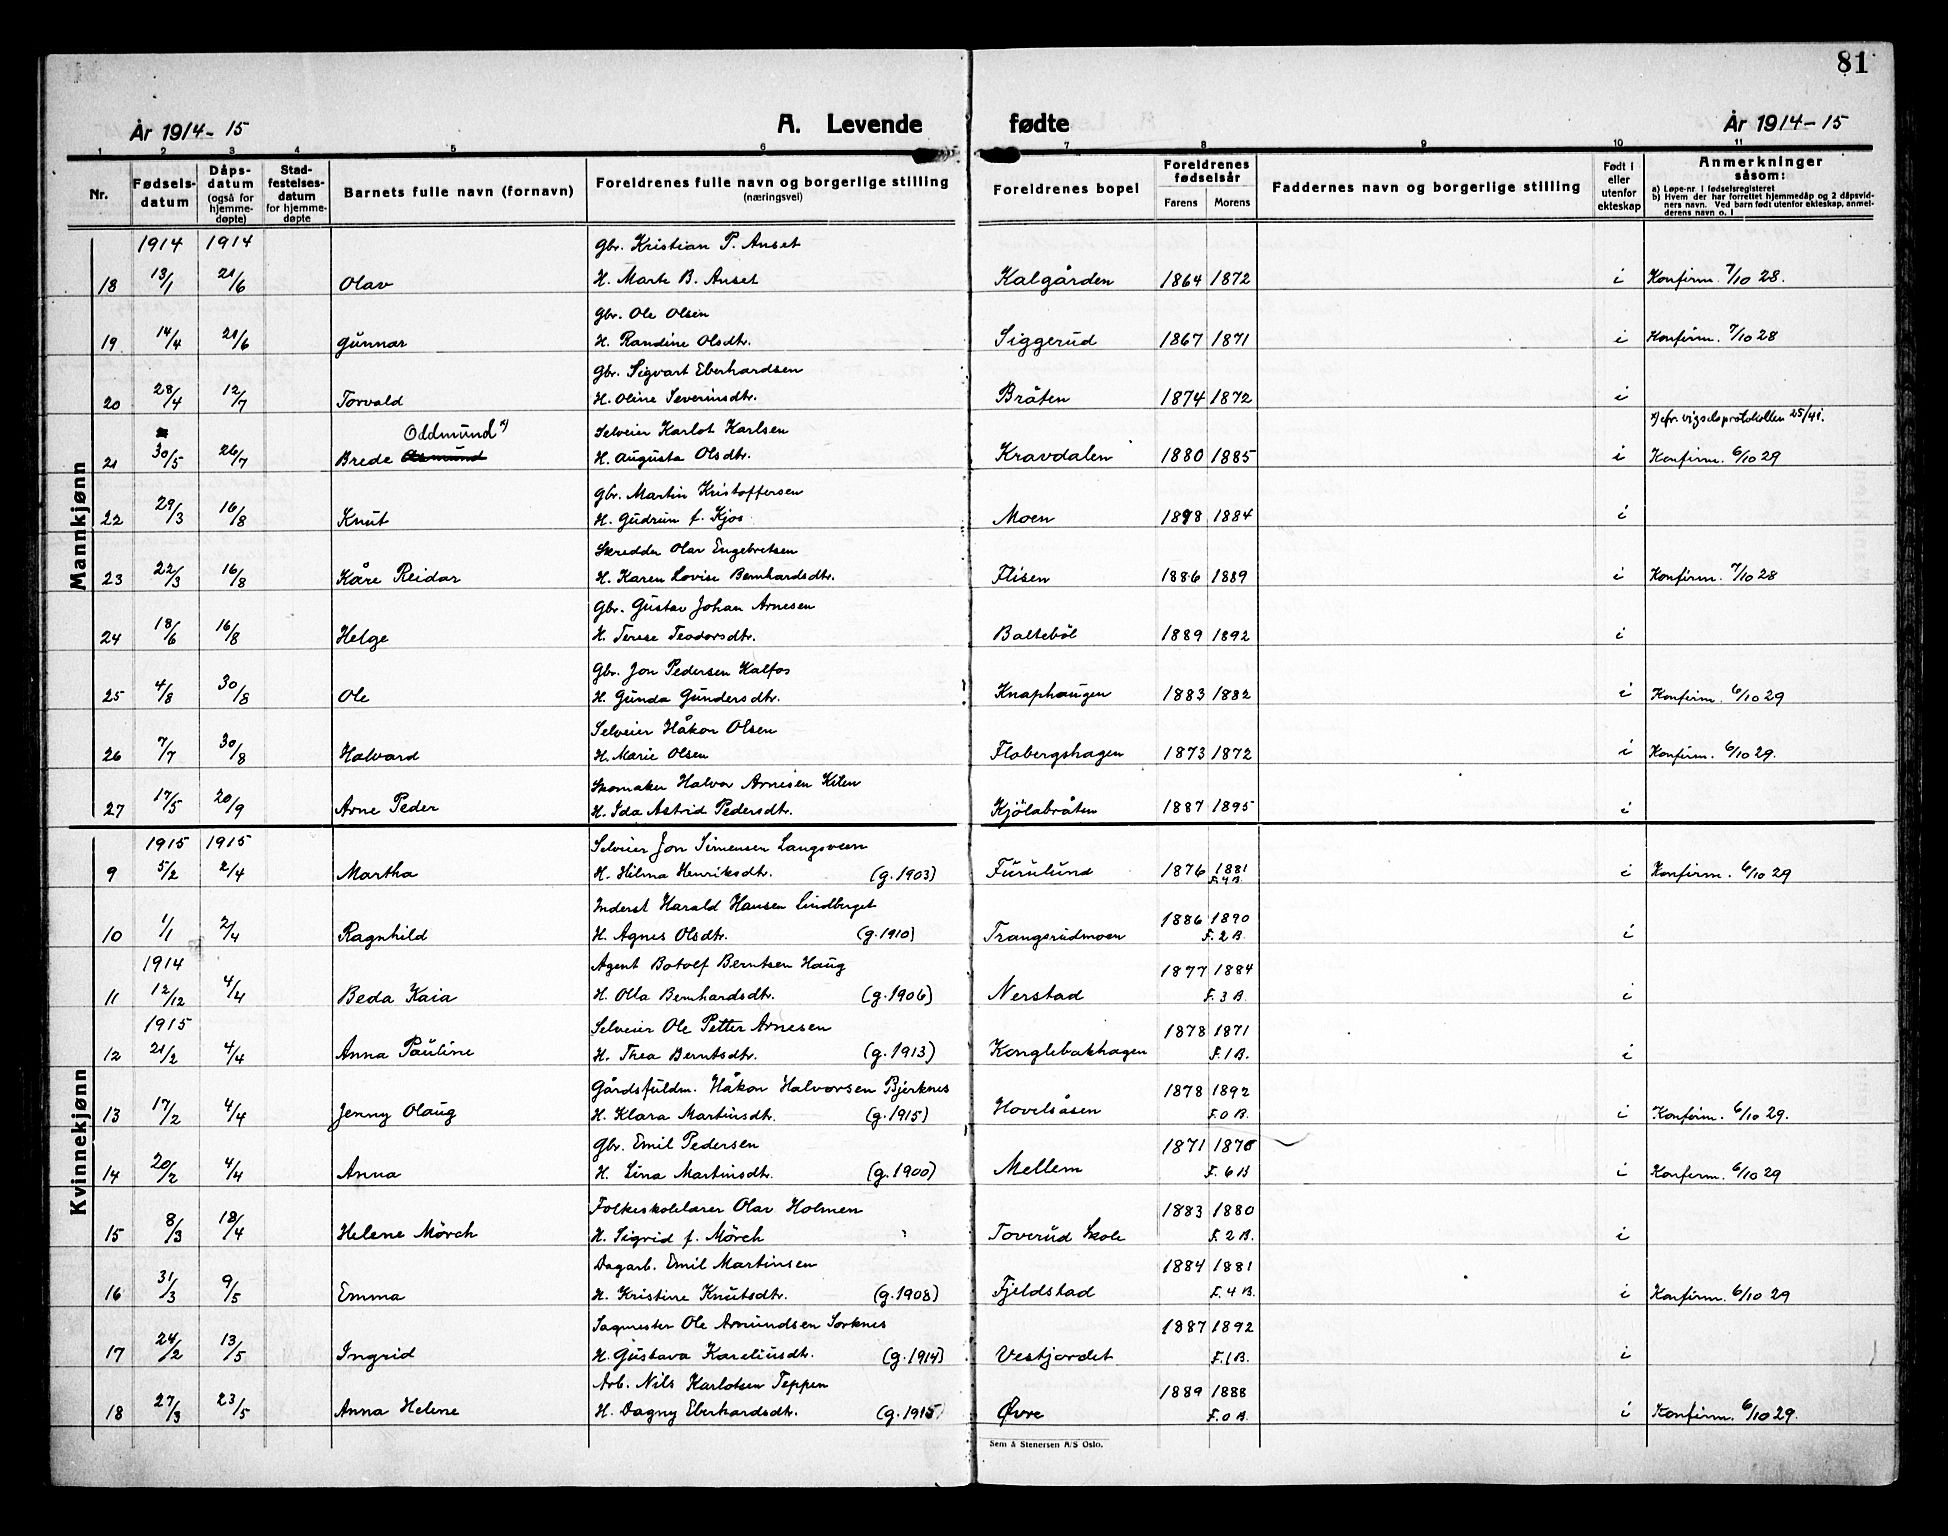 81
År 1914-15 A. Levende fødte År 1914-15
1 2 3 4 5 6 7 8 9 10 11
Nr. Fødselsdatum Dåpsdatum (også for hjemmedøpte) Stadfestelsesdatum for hjemmedøpte Barnets fulle navn (fornavn) Foreldrenes fulle navn og borgerlige stilling (næringsvei) Foreldrenes bopel Foreldrenes fødselsår Farens Morens Faddernes navn og borgerlige stilling Født i eller utenfor ekteskap Anmerkninger såsom:
a) Løpe-nr. i fødselsregisteret
b) Hvem der har forrettet hjemmedåp og 2 dåpsvidners navn. Ved barn født utenfor ekteskap, anmelderens navn o. l
Mannkjønn
1914 1914 Gbr. Kristian P. Anset
18 13/1 21/6 Olav H. Marte B. Anset Kalgården 1864 1872 i Konfirm. 7/10 28.
Gbr. Ole Olsen
19 14/4 21/6 Gunnar H. Randine Olsdtr. Siggerud 1867 1871 i Konfirm. 7/10 28
Gbr. Sigvart Eberhardsen
20 28/4 12/7 Torvald H. Oline Severinsdtr. Bråten 1874 1872 i
Oddmund x) Selveier Karlot Karlsen x) cfr. vigselsprotokollen 25/41.
21 30/5 26/7 Brede Asmund H. Augusta Olsdtr. Kravdalen 1880 1885 i Konfirm. 6/10 29
Gbr. Martin Kristoffersen
22 29/3 16/8 Knut H. Gudrun f. Kjos Moen 1898 1884 i
Skredder Olav Engebretsen
23 22/3 16/8 Kåre Reidar H. Karen Lovise Bernhardsdtr. Flisen 1886 1889 i Konfirm. 7/10 28
Gbr. Gustav Johan Arnesen
24 18/6 16/8 Helge H. Terese Teodorsdtr. Baltebøl 1889 1892 i
Gbr. Jon Pedersen Kalfos
25 4/8 30/8 Ole H. Gunda Gundersdtr. Knaphaugen 1883 1882 i Konfirm. 6/10 29
Selveier Håkon Olsen
26 7/7 30/8 Halvard H. Marie Olsen Flobergshagen 1873 1872 i Konfirm. 6/10 29.
Skomaker Halvor Arnesen Kilen
27 17/5 20/9 Arne Peder H. Ida Astrid Pedersdtr. Kjölabråten 1887 1895 i
Kvinnekjønn
1915 1915 Selveier Jon Simensen Langsveen
9 5/2 2/4 Martha H. Hilma Henriksdtr. (g. 1903) Furulund 1876 1881 F. 4 B. i Konfirm. 6/10 29
Inderst Harald Hansen Lindberget
10 1/1 2/4 Ragnhild H. Agnes Olsdtr. (g. 1910) Trangsrudmoen 1886 1890 F. 2 B. i
1914 Agent Botolf Berntsen Haug
11 12/12 4/4 Beda Kaia H. Olla Bernhardsdtr. (g. 1906) Nerstad 1877 1884 F. 3 B. i
1915 Selveier Ole Petter Arnesen
12 21/2 4/4 Anna Pauline H. Thea Berntsdtr. (g. 1913) Konglebakhagen 1878 1871 F. 1 B. i
Gårdsfuldm. Håkon Halvorsen Bjerknes
13 17/2 4/4 Jenny Olaug H. Klara Martinsdtr. (g. 1915) Hovelsåsen 1878 1892 F. 0 B. i Konfirm. 6/10 29.
Gbr. Emil Pedersen
14 20/2 4/4 Anna H. Lina Martinsdtr. (g. 1900) Mellem 1871 1876 F. 6 B i Konfirm. 6/10 29
Folkeskolelærer Olav Holmen
15 8/3 18/4 Helene Mörch H. Sigrid f. Mörch Toverud Skole 1883 1880 F. 2 B. i
Dagarb. Emil Martinsen
16 31/3 9/5 Emma H. Kristine Knutsdtr. (g. 1908) Fjeldstad 1884 1881 F. 4 B. i Konfirm. 6/10 29
Sagmester Ole Amundsen Sorknes
17 24/2 13/5 Ingrid H. Gustava Kareliusdtr. (g. 1914) Vestjordet 1887 1892 F. 1 B. i
Arb. Nils Karlotsen Teppen
18 27/3 23/5 Anna Helene H. Dagny Eberhardsdtr. (g. 1915) Øvre 1889 1888 F. 0 B. i Konfirm. 6/10 29.
Sem & Stenersen A/S Oslo.